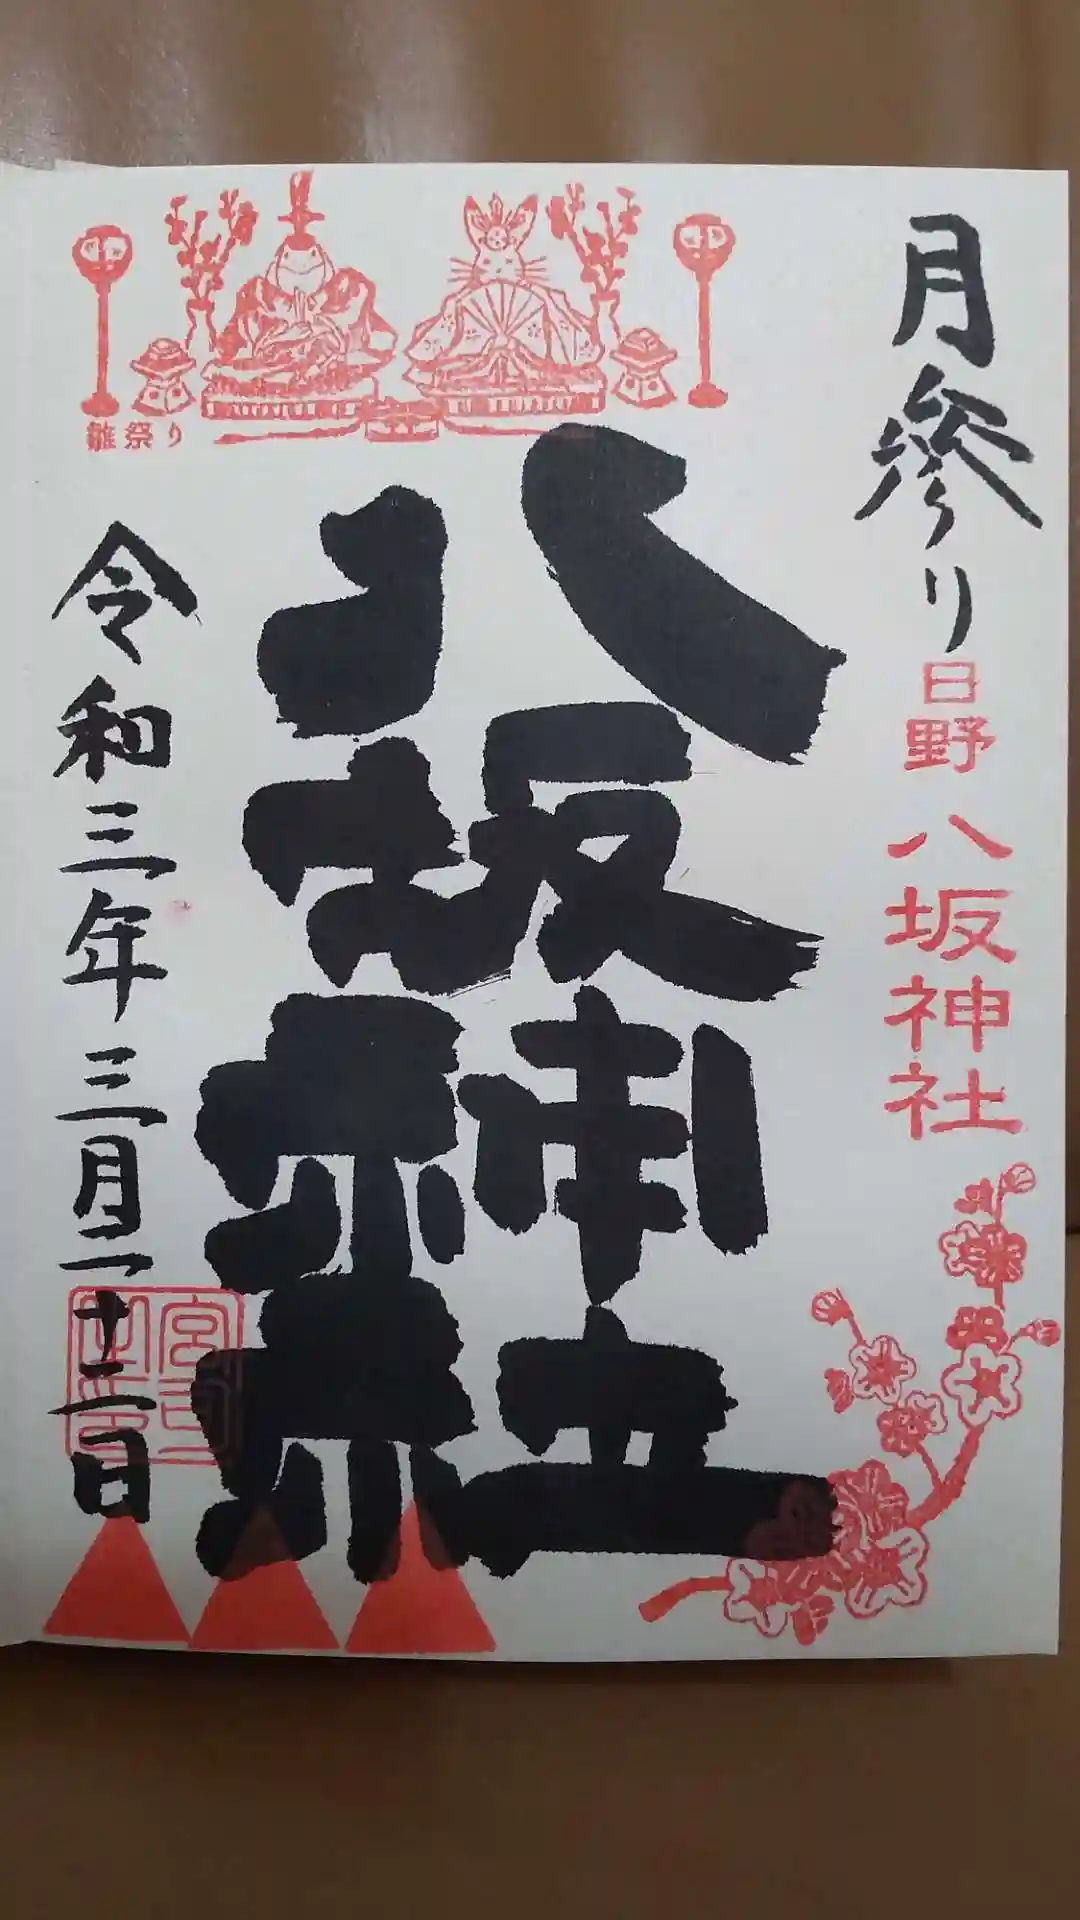 月参り
日野八坂神社
八坂神社
雛祭り
令和三年三月二十二日
宮司之印